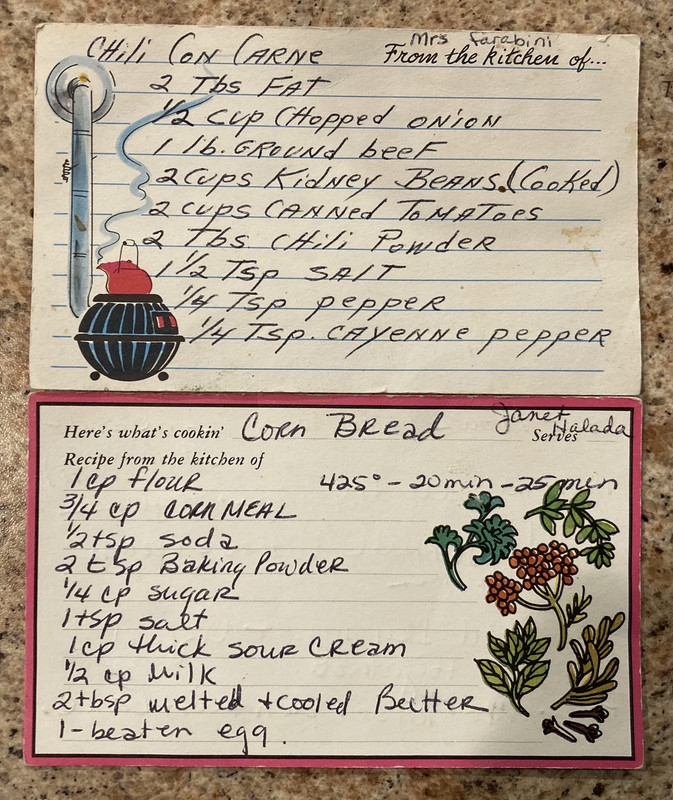 Mrs Farabini
CHili CON CARNE From the kitchen of...
2 Tbs FAT
1/2 CUP CHopped ONiON
1 lb. GROUND beeF
2 Cups Kidney BEANS. (Cooked)
2 cups CANNED TOMATOES
2 Tbs CHili Powder
1 1/2 Tsp SALT
1/4 Tsp pepper
1/4 Tsp. CAYENNE pepper
Janet Halada
Here's what's cookin' Corn Bread Serves
Recipe from the kitchen of
1 cp flour 425° - 20 min - 25 min
3/4 cp CORN MEAL
1/2 tsp soda
2 tsp Baking Powder
1/4 cp sugar
1 tsp salt
1 cp thick sour Cream
1/2 cp Milk
2 tbsp melted + cooled Butter
1 - beaten egg.